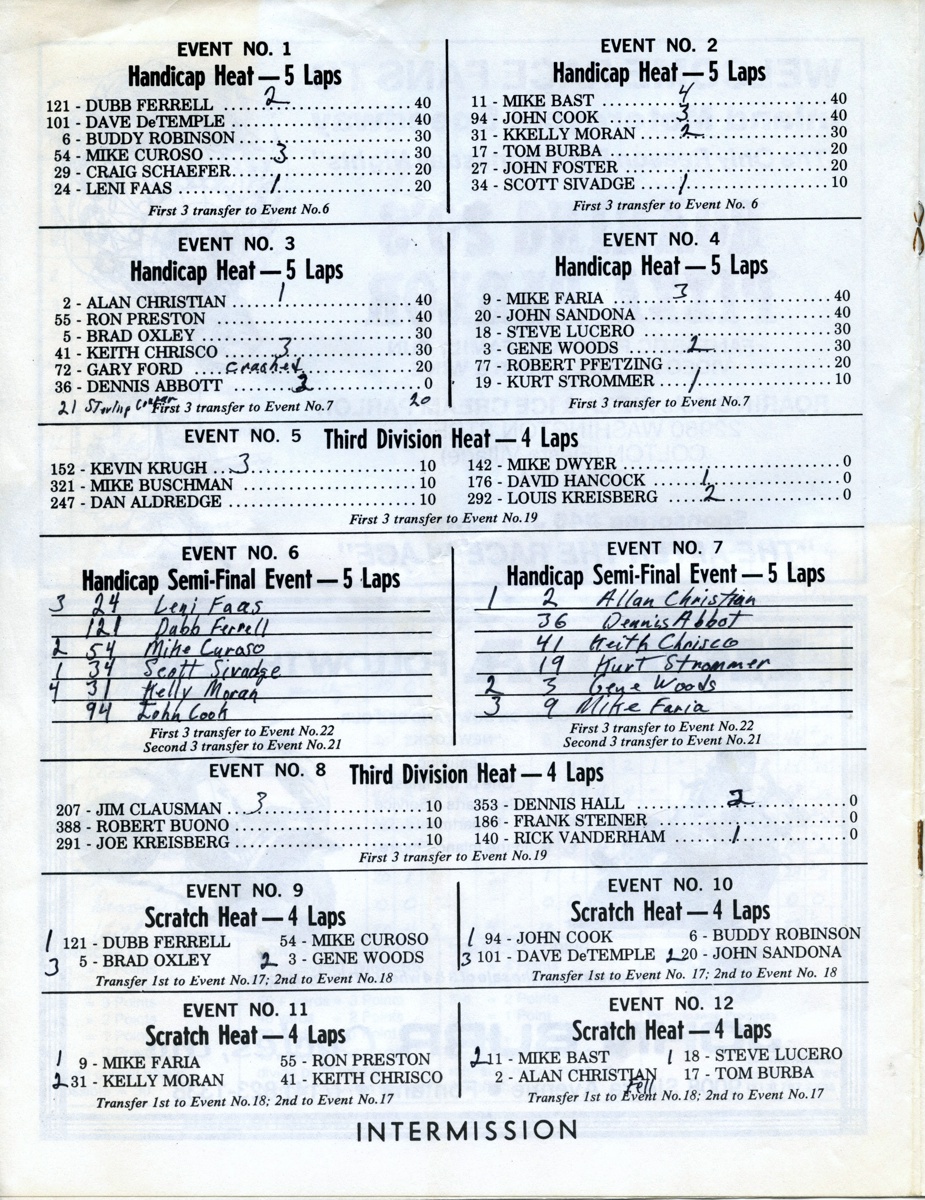 EVENT NO. 1
Handicap Heat — 5 Laps
121 - DUBB FERRELL 2 40
101 - DAVE DeTEMPLE 40
6 - BUDDY ROBINSON 30
54 - MIKE CUROSO 3 30
29 - CRAIG SCHAEFER 20
24 - LENI FAAS 1 20
First 3 transfer to Event No.6
EVENT NO. 2
Handicap Heat — 5 Laps
11 - MIKE BAST 4 40
94 - JOHN COOK 3 40
31 - KKELLY MORAN 2 30
17 - TOM BURBA 20
27 - JOHN FOSTER 20
34 - SCOTT SIVADGE 1 10
First 3 transfer to Event No. 6
EVENT NO. 3
Handicap Heat — 5 Laps
2 - ALAN CHRISTIAN 1 40
55 - RON PRESTON 40
5 - BRAD OXLEY 30
41 - KEITH CHRISCO 3 30
72 - GARY FORD Crashed 20
36 - DENNIS ABBOTT 2 0
21 20
First 3 transfer to Event No.7
EVENT NO. 4
Handicap Heat — 5 Laps
9 - MIKE FARIA 3 40
20 - JOHN SANDONA 40
18 - STEVE LUCERO 30
3 - GENE WOODS 2 30
77 - ROBERT PFETZING 20
19 - KURT STROMMER 1 10
First 3 transfer to Event No.7
EVENT NO. 5 Third Division Heat — 4 Laps
152 - KEVIN KRUGH 3 10
321 - MIKE BUSCHMAN 10
247 - DAN ALDREDGE 10
142 - MIKE DWYER 0
176 - DAVID HANCOCK 1 0
292 - LOUIS KREISBERG 2 0
First 3 transfer to Event No.19
EVENT NO. 6
Handicap Semi-Final Event — 5 Laps
3 24 Leni Faas
121 Dubb Ferrell
2 54 Mike Curoso
1 34 Scott Sivadge
4 31 Kelly Moran
94 John Cook
First 3 transfer to Event No.22
Second 3 transfer to Event No.21
EVENT NO. 7
Handicap Semi-Final Event — 5 Laps
1 2 Allan Christian
36 Dennis Abbot
41 Keith Chrisco
19 Kurt Strommer
2 3 Gene Woods
3 9 Mike Faria
First 3 transfer to Event No.22
Second 3 transfer to Event No.21
EVENT NO. 8 Third Division Heat — 4 Laps
207 - JIM CLAUSMAN 3 10
388 - ROBERT BUONO 10
291 - JOE KREISBERG 10
353 - DENNIS HALL 2 0
186 - FRANK STEINER 0
140 - RICK VANDERHAM 1 0
First 3 transfer to Event No.19
EVENT NO. 9
Scratch Heat — 4 Laps
1 121 - DUBB FERRELL 54 - MIKE CUROSO
3 5 - BRAD OXLEY 2 3 - GENE WOODS
Transfer 1st to Event No.17; 2nd to Event No.18
EVENT NO. 10
Scratch Heat — 4 Laps
1 94 - JOHN COOK 6 - BUDDY ROBINSON
3 101 - DAVE DeTEMPLE 2 20 - JOHN SANDONA
Transfer 1st to Event No.17; 2nd to Event No. 18
EVENT NO. 11
Scratch Heat — 4 Laps
1 9 - MIKE FARIA 55 - RON PRESTON
2 31 - KELLY MORAN 41 - KEITH CHRISCO
Transfer 1st to Event No.18; 2nd to Event No.17
EVENT NO. 12
Scratch Heat — 4 Laps
2 11 - MIKE BAST 1 18 - STEVE LUCERO
2 - ALAN CHRISTIAN 17 - TOM BURBA
Fell
Transfer 1st to Event No.18; 2nd to Event No.17
INTERMISSION